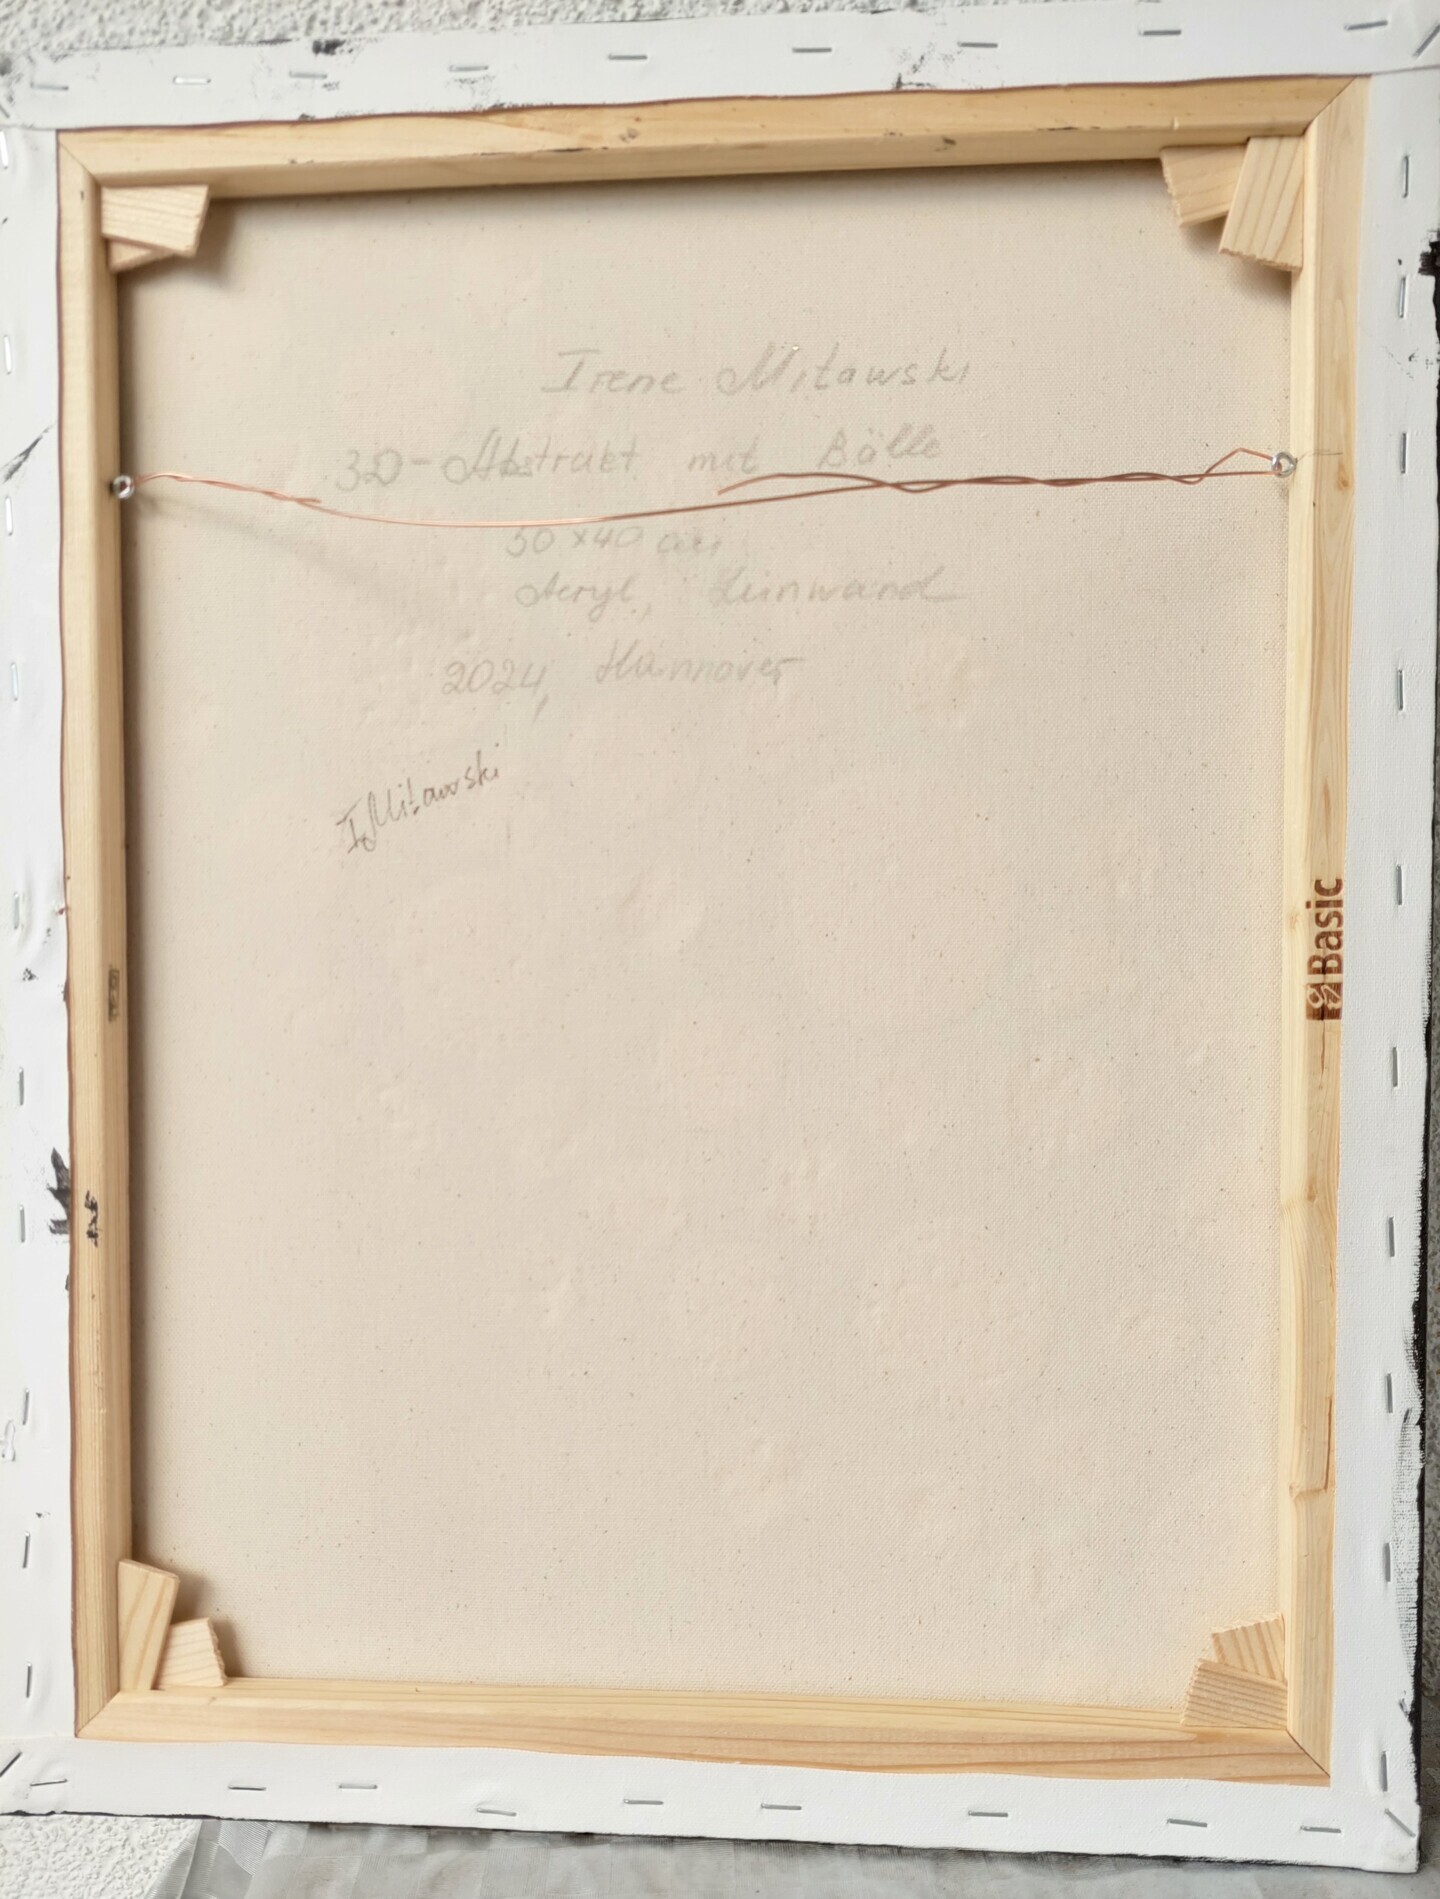 Irene Mitawski
3D-Abstrakt mit Bälle
50x40 cm
Acryl, Leinwand
2024, Hannover
I Mitawski
Basic